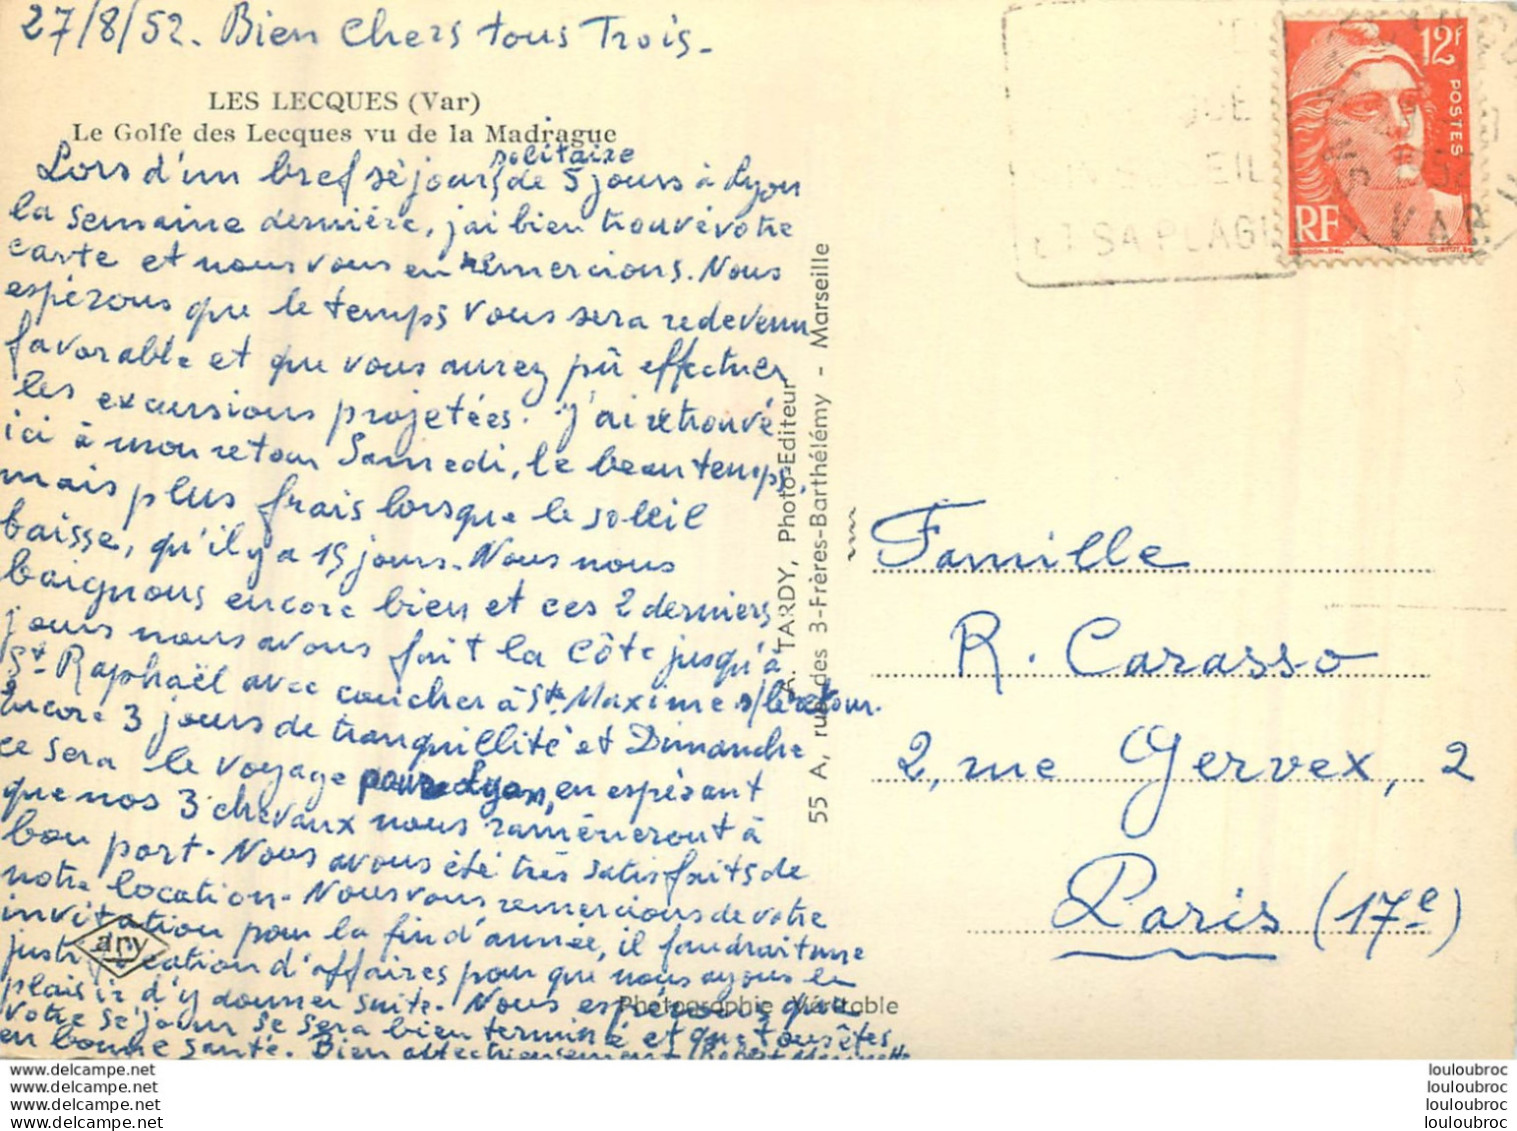 27/8/52. Bien chers tous Trois.
LES LECQUES (Var)
Le Golfe des Lecques vu de la Madrague
solitaire
Lors d'un bref séjour de 5 jours à Lyon
la semaine dernière, j'ai bien trouvé votre
carte et nous vous en remercions. Nous
espérons que le temps vous sera redevenu
favorable et que vous aurez pû effectuer
les excursions projetées. J'ai retrouvé
ici à mon retour Samedi, le beau temps,
mais plus frais lorsque le soleil
baisse, qu'il y a 15 jours. Nous nous
baignons encore bien et ces 2 derniers
jours nous avons fait la Côte jusqu'à
St. Raphaël avec coucher à Ste Maxime s/le retour.
Encore 3 jours de tranquillité et Dimanche
ce sera le voyage pour Lyon, en espérant
que nos 3 chevaux nous ramèneront à
bon port. Nous avons été très satisfaits de
notre location. Nous vous remercions de votre
invitation pour la fin d'année, il faudrait une
justification d'affaires pour que nous ayons le
plaisir d'y donner suite. Nous espérons que
votre séjour se sera bien terminé et que tous êtes
en bonne santé. Bien affectueusement Robert
ary
Photographie Véritable
A. TARDY, Photo-Editeur
55 A, rue des 3-Frères-Barthélémy - Marseille
ET SA PLAGE
12F
POSTES
RF
VAR
Famille
R. Carasso
2, rue Gervex, 2
Paris (17e)
louloubroc
louloubroc
louloubroc
louloubroc
delcampe.net
delcampe.net
delcampe.net
delcampe.net